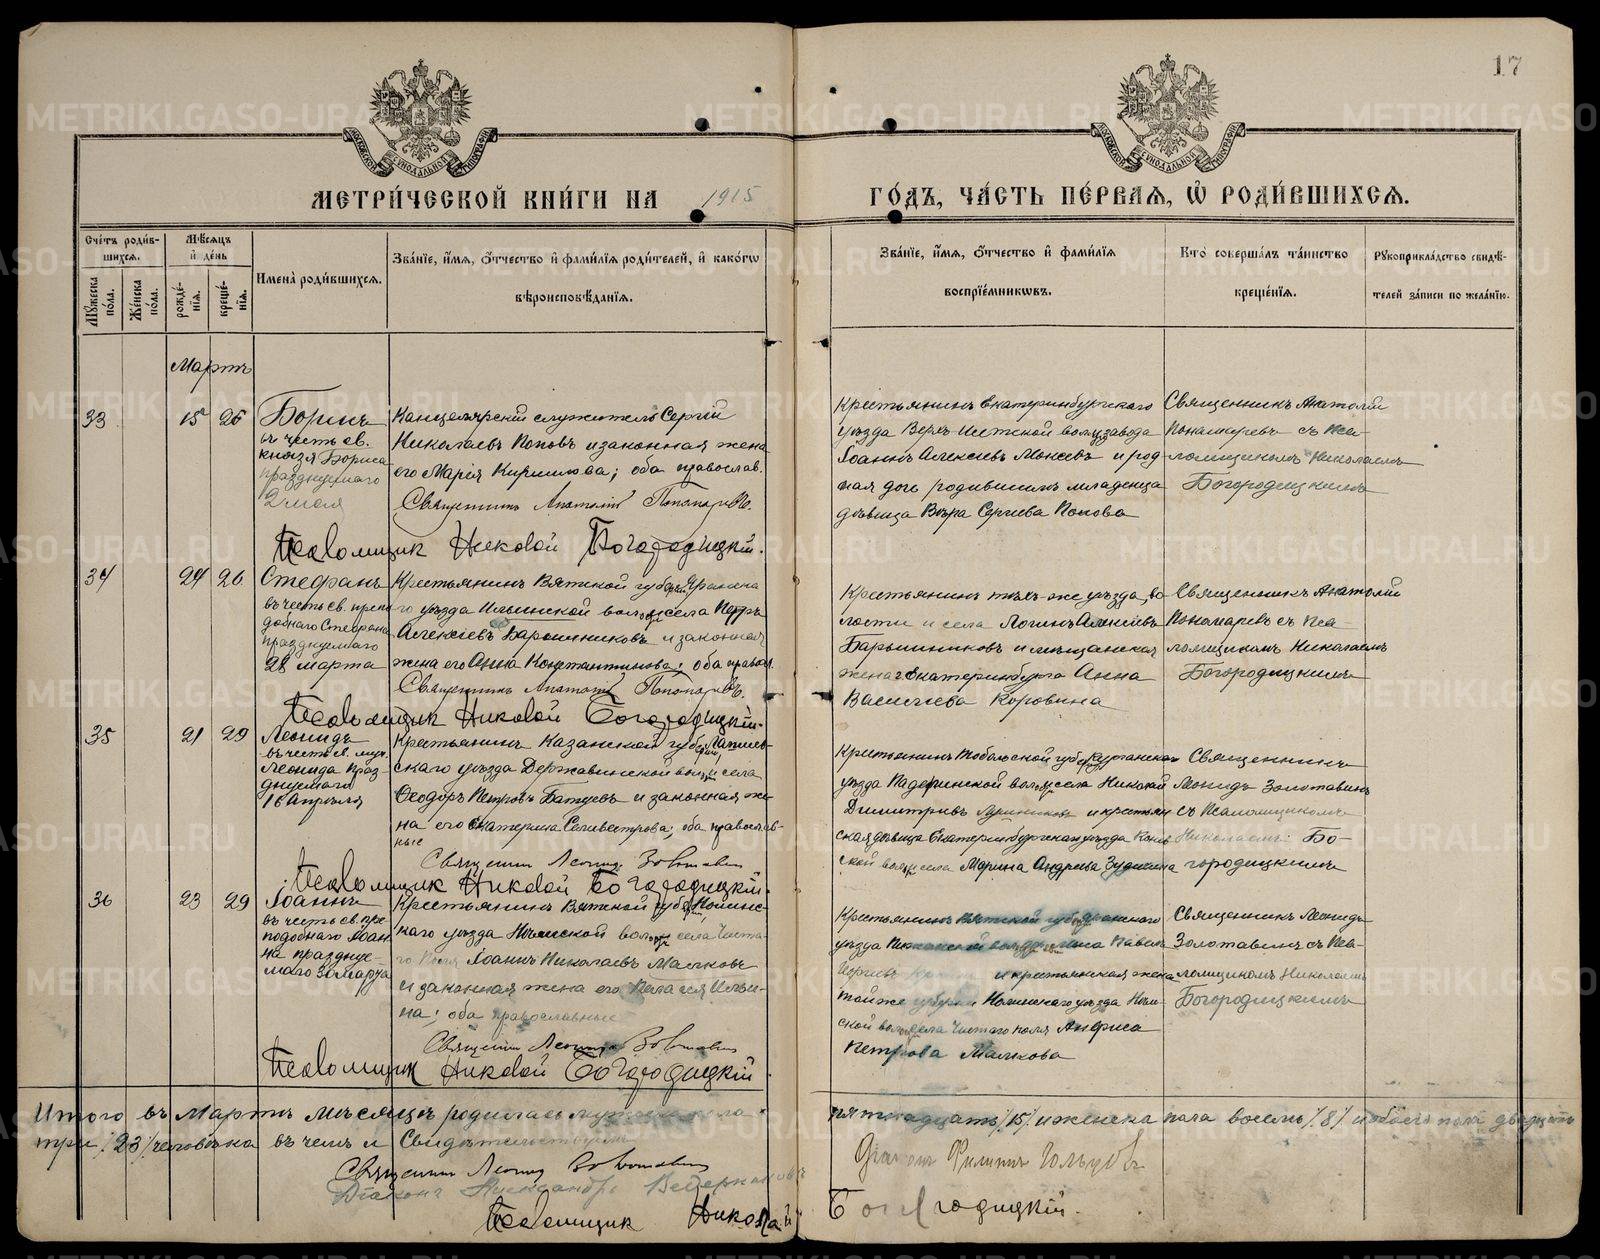 17
МЕТРИ́ЧЕСКОЙ КНИ́ГИ НА 1915 ГО́ДЪ, ЧА́СТЬ ПЕ́РВАЯ, Ѡ РОДИ́ВШИХСЯ.
Сче́тъ роди́в-
шихся.
Му́жеска по́ла.
Же́нска по́ла.
Мѣ́сяцъ и де́нь
рожде́-
нія.
креще́-
нія.
Имена̀ роди́вшихся.
Зва́ніе, и́мя, о́тчество и фами́лія роди́телей, и како́гѡ
вѣроисповѣ́данія.
Зва́ніе, и́мя, о́тчество и фами́лія
воспріе́мниковъ.
Кто̀ соверша́лъ та́инство
креще́нія.
Рукоприкла́дство свидѣ́-
телей за́писи по жела́нію.
Мартъ
33 15 26
Борисъ
въ честь св.
князя Бориса
празднуемаго
2 мая
Канцелярскій служитель Сергій
Николаевъ Поповъ и законная жена
его Марія Кириллова; оба православ.
Священникъ Анатолій Пономаревъ.
Псаломщик Николай Богородицкій.
Крестьянинъ Екатеринбургскаго
уѣзда Верх-Исетской вол. завода
Іоаннъ Алексѣевъ Мокѣевъ и род-
ная дочь родившихъ младенца
дѣвица Вѣра Сергѣева Попова
Священникъ Анатолій
Пономаревъ съ Пса-
ломщикомъ Николаемъ
Богородицкимъ
34 24 26
Стефанъ
въ честь св. препо
добнаго Стефана
празднуемаго
28 марта
Крестьянинъ Вятской губерніи Яранска
го уѣзда Ильинской волости села Петръ
Алексѣевъ Барышниковъ и законная
жена его Анна Константинова; оба правосл.
Священникъ Анатолій Пономаревъ.
Псаломщик Николай Богородицкій.
Крестьянинъ тѣхъ-же уѣзда, во
лости и села Логинъ Алексѣевъ
Барышниковъ и мѣщанская
жена г. Екатеринбурга Анна
Васильева Коровина
Священникъ Анатолій
Пономаревъ съ Пса-
ломщикомъ Николаемъ
Богородицкимъ
35 21 29
Леонидъ
въ честь св. муч.
Леонида праз-
днуемаго
16 Апрѣля
Крестьянинъ Казанской губерніи Лаишев-
скаго уѣзда Державинской волости села
Ѳеодоръ Петровъ Батуевъ и законная же-
на его Екатерина Селивестрова; оба православ-
ные
Священникъ Леонидъ Золотавинъ
Псаломщик Николай Богородицкій.
Крестьянинъ Тобольской губерніи Курганскаго
уѣзда Падеринской волости села Николай
Димитріевъ и крестьян
ская дѣвица Екатеринбургскаго уѣзда
ской волости села Марина Андреева
Священникъ
Леонидъ Золотавинъ
съ Псаломщикомъ
Николаемъ Бо-
городицкимъ
36 23 29
Іоаннъ
въ честь св. пре-
подобнаго Іоан-
на празднуе-
маго 30 марта
Крестьянинъ Вятской губерніи, Нолинс-
каго уѣзда волости села Чиста-
го Поля Іоаннъ Николаевъ Малковъ
и законная жена его Пелагея Ильи-
на; оба православные
Священникъ Леонидъ Золотавинъ
Псаломщик Николай Богородицкій.
Крестьянинъ Вятской губерніи Яранскаго
уѣзда волости села Павелъ
и крестьянская жена
той же губерніи Нолинскаго уѣзда
ской волости села Чистаго поля Анфиса
Петрова Малкова
Священникъ Леонидъ
Золотавинъ съ Пса-
ломщикомъ Николаемъ
Богородицкимъ
Итого въ Мартѣ мѣсяцѣ родилось мужеска пола пятнадцать /15/ и женска пола восемь /8/ и обоего пола двадцать
три /23/ человѣка въ чемъ и Свидѣтельствуемъ
Священникъ Леонидъ Золотавинъ
Діаконъ Филиппъ Гольцовъ
Діаконъ Александръ Ведерниковъ
Псаломщик Николай Богородицкій.
METRIKI.GASO-URAL.RU